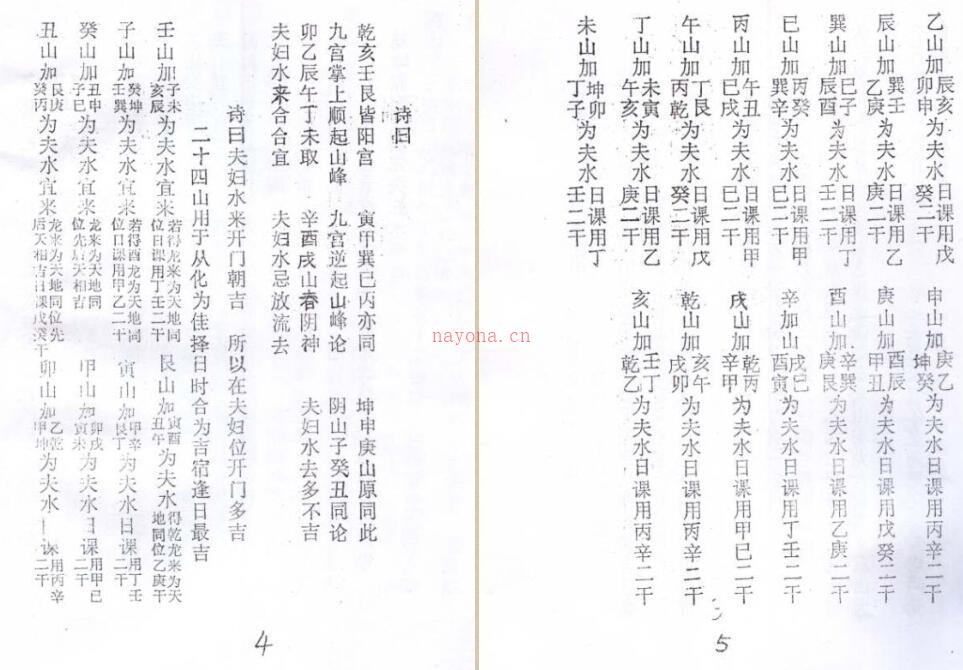 诗曰
乾亥壬艮皆阳宫 寅甲巽巳丙亦同 坤申庚山原同此
九宫掌上顺起山峰 九宫逆起山峰论 阴山子癸丑同论
卯乙辰午丁未取 辛酉戌山春阴神 夫妇水去多不吉
夫妇水来合合宜 夫妇水忌放流去
诗曰夫妇水来开门朝吉 所以在夫妇位开门多吉
二十四山用于从化为佳择日时合为吉宿逢日最吉
壬山加子未亥辰为夫水宜来若得龙来为天地同位日课用丁壬二干 艮山加寅酉丑午为夫水得乾龙来为天地同位乙庚干
子山加癸坤壬巽为夫水宜来若得酉龙为天地同位日课用甲乙二十 寅山加甲辛艮丁为夫水日课用丁壬二干
癸山加丑申子巳为夫水宜来龙来为天地同位先后天相吉 甲山加卯戌寅未为夫水日课用甲已二干
丑山加艮庚癸丙为夫水宜来龙来为天地同位先后天相吉日课戊癸干 卯山加乙乾甲坤为夫水日课用丙辛二干
4
乙山加辰亥卯申为夫水日课用戊癸二干 申山加庚乙坤癸为夫水日课用丙辛二干
辰山加巽壬乙庚为夫水日课用乙庚二干 庚山加酉辰甲丑为夫水日课用戊癸二干
巽山加巳子辰酉为夫水日课用丁壬二干 酉山加辛巽庚艮为夫水日课用乙庚二干
巳山加丙癸巽辛为夫水日课用甲巳二干 辛加山戌巳酉寅为夫水日课用丁壬二干
丙山加午丑巳戌为夫水日课用甲巳二干 戌山加乾丙辛甲为夫水日课用甲巳二干
午山加丁艮丙乾为夫水日课用戊癸二干 乾山加亥午戌卯为夫水日课用丙辛二干
丁山加未寅午亥为夫水日课用乙庚二干 亥山加壬丁乾乙为夫水日课用丙辛二干
未山加坤卯丁子为夫水日课用丁壬二干
5
nayona.cn